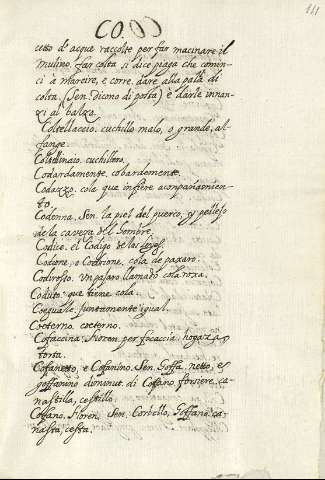 111
CO.
cetto d'acque raccolte per far macinare il
mulino. far colta si dice piaga che comin-
ci à marcire, e corre. dare alla palla di
colta, (Sen. dicono di posta) è darle innan-
zi al balzo.
Coltellaccio. cuchillo malo, o grande, al-
fange.
Coltellinaio. cuchillero.
Codardamente. cobardemente.
Codazzo. cola que infiere acompañamien-
to.
Codenna, Sen. la piel del puerco, y pellejo
de la caveza del hombre.
Codice. el Codigo de las leyes.
Codone, o Codrione, cola de paxaro.
Codirosso. Un paxaro llamado cola roxa.
Coduto. que tiene cola.
Coeguale. juntamente igual.
Coeterno. coeterno.
Cofaccina. Fioren. per focaccia, hogaza, o
torta.
Cofanetto, e Cofanino. Sen. Goffa netto, e
goffanino diminut. di Coffano forsiere, ca-
nastilla, cestillo.
Coffano. Fioren. Sen. Corbello, Goffano. ca-
nasta, cesta.